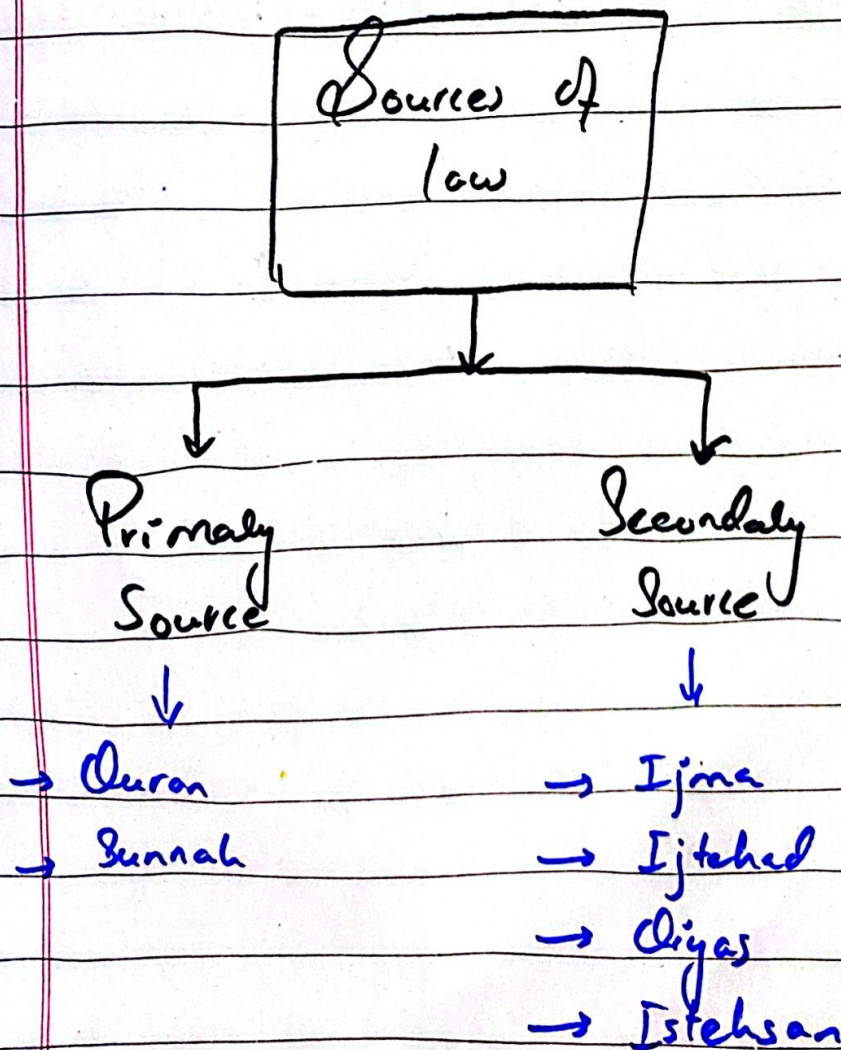 Sources of
law
Primary
Source
→ Quran
→ Sunnah
Secondary
Source
→ Ijma
→ Ijtehad
→ Qiyas
→ Istehsan